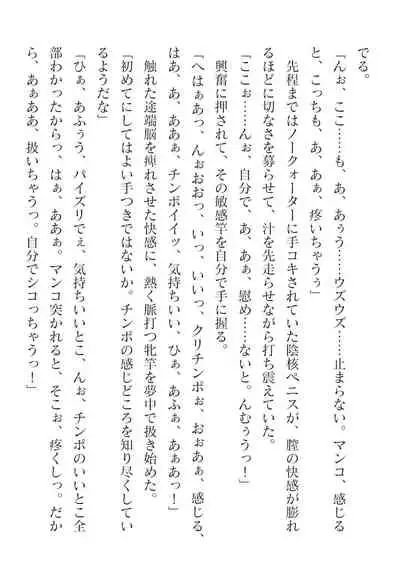 でる。
「んぉ、ここ……も、あ、あぅう……ウズウズ……止まらない。マンコ、感じる
と、こっちも、あ、あぁ、疼いちゃうぅ」
先程まではノークォーターに手コキされていた陰核ペニスが、膣の快感が膨れ
るほどに切なさを募らせて、汁を先走らせながら打ち震えていた。
「ここぉ……んぉ、自分で、あ、あぁ、慰め……ないと。んむぅうっ！」
興奮に押されて、その敏感竿を自分で手に握る。
「へはぁあっ、んぉおおっ、いっ、いいっ、クリチンポぉ、おぉあぁ、感じる、
はあ、あ、ああぁ、チンポイイッ、気持ちいい、ひぁ、あふぁ、あぁあっ！」
触れた途端脳を痺れさせた快感に、熱く脈打つ牝竿を夢中で扱き始めた。
「初めてにしてはよい手つきではないか。チンポの感じどころを知り尽くしてい
るようだな」
「ひぁ、あふぅう、パイズリでぇ、気持ちいいとこ、んぉ、チンポのいいとこ全
部わかったからっ、はぁ、ああぁ。マンコ突かれると、そこぉ、疼くしっ。だか
ら、あぁああ、扱いちゃうっ。自分でシコっちゃうっ！」